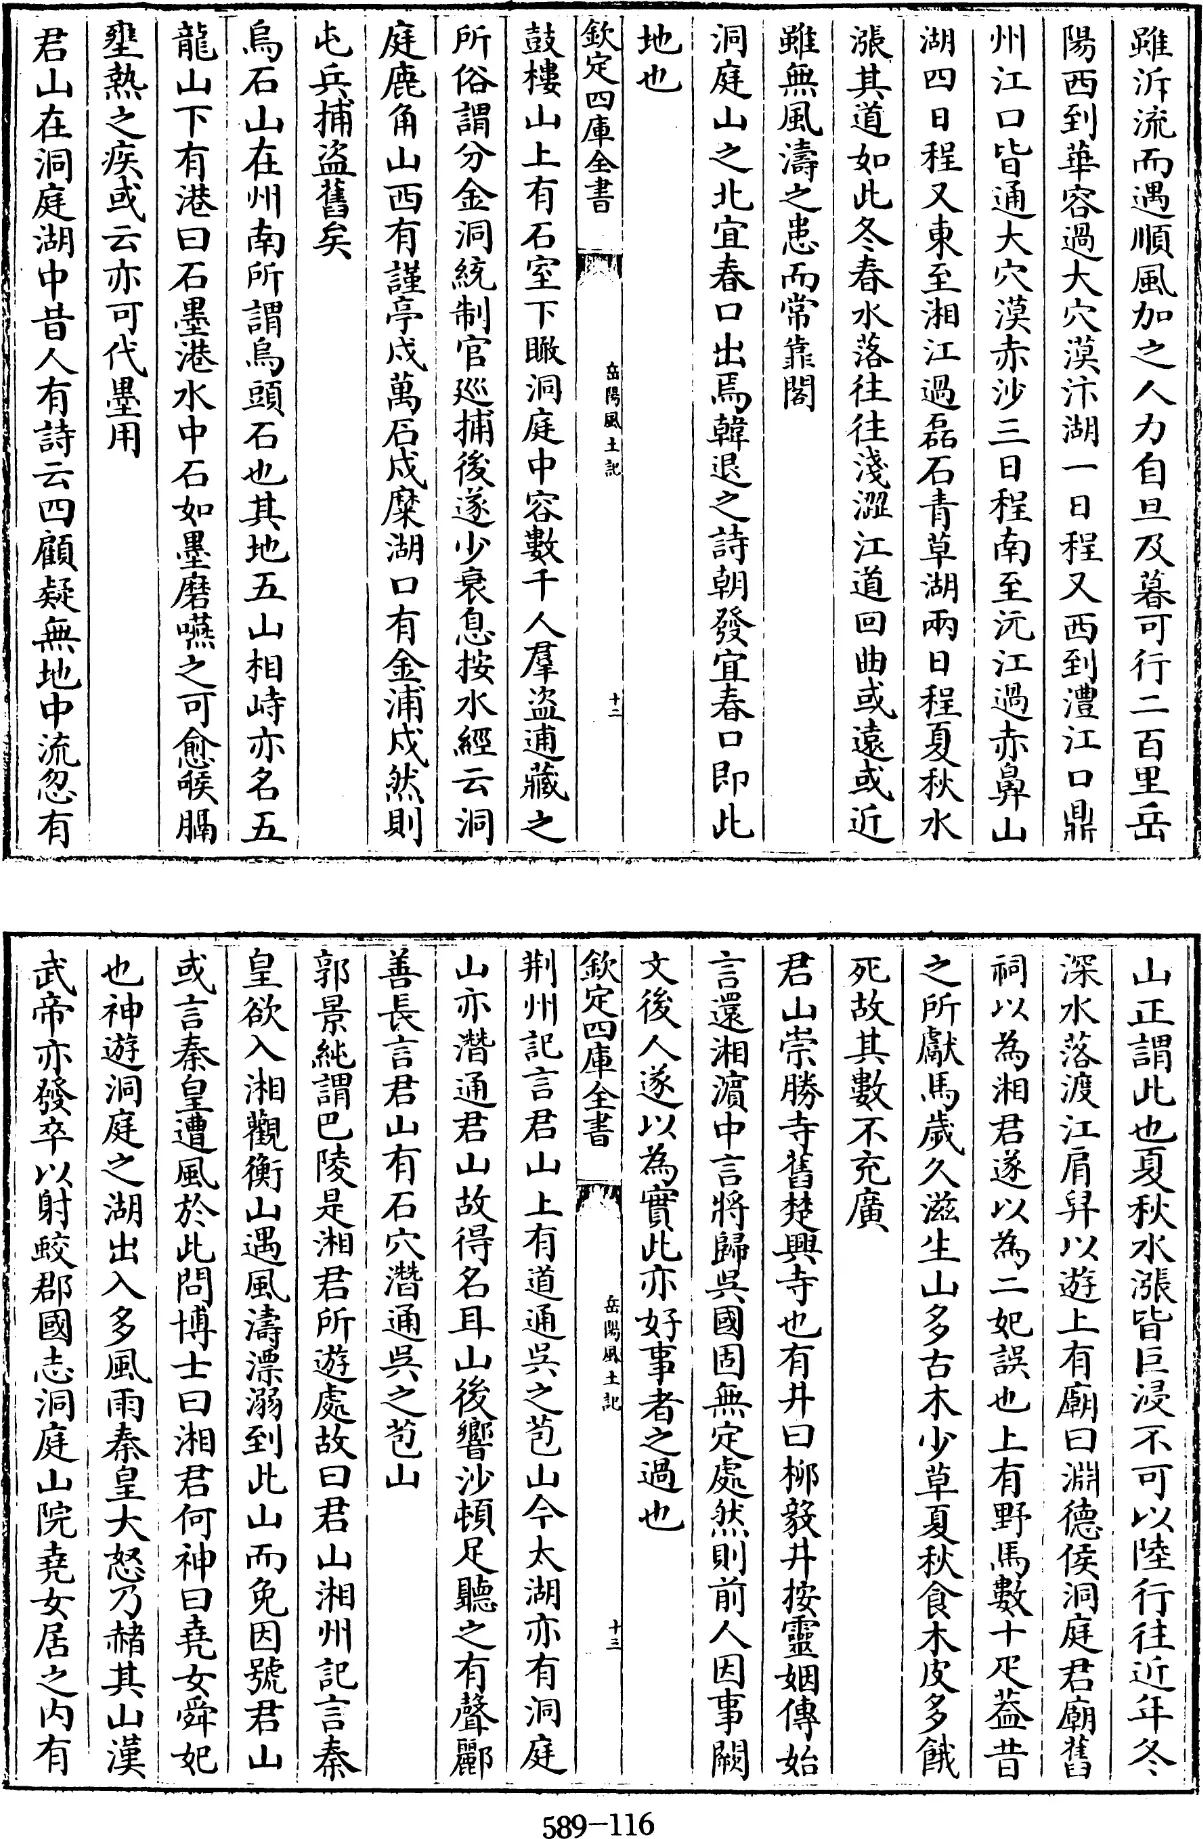 雖泝流而遇順風加之人力自旦及暮可行二百里岳
陽西到華容過大穴漠汴湖一日程又西到澧江口鼎
州江口皆通大穴漠赤沙三日程南至沅江過赤鼻山
湖四日程又東至湘江過磊石青草湖兩日程夏秋水
漲其道如此冬春水落往往淺澀江道回曲或遠或近
雖無風濤之患而常靠閣
洞庭山之北宜春口出焉韓退之詩朝發宜春口即此
地也
欽定四庫全書
岳陽風土記
十二
鼓樓山上有石室下瞰洞庭中容數千人羣盜逋藏之
所俗謂分金洞統制官巡捕後遂少衰息按水經云洞
庭鹿角山西有謹亭戍萬石戍麋湖口有金浦戍然則
屯兵捕盜舊矣
烏石山在州南所謂烏頭石也其地五山相峙亦名五
龍山下有港曰石墨港水中石如墨磨嚥之可愈喉膈
壅熱之疾或云亦可代墨用
君山在洞庭湖中昔人有詩云四顧疑無地中流忽有
山正謂此也夏秋水漲皆巨浸不可以陸行往近年冬
深水落渡江肩舁以遊上有廟曰淵德侯洞庭君廟舊
祠以為湘君遂以為二妃誤也上有野馬數十疋葢昔
之所獻馬歲久滋生山多古木少草夏秋食木皮多餓
死故其數不充廣
君山崇勝寺舊楚興寺也有井曰柳毅井按靈姻傳始
言還湘濵中言將歸吳國固無定處然則前人因事闕
文後人遂以為實此亦好事者之過也
欽定四庫全書
岳陽風土記
十三
荆州記言君山上有道通吳之苞山今太湖亦有洞庭
山亦濳通君山故得名耳山後響沙頓足聽之有聲酈
善長言君山有石穴濳通吳之苞山
郭景純謂巴陵是湘君所遊處故曰君山湘州記言秦
皇欲入湘觀衡山遇風濤漂溺到此山而免因號君山
或言秦皇遭風於此問博士曰湘君何神曰堯女舜妃
也神遊洞庭之湖出入多風雨秦皇大怒乃赭其山漢
武帝亦發卒以射蛟郡國志洞庭山院堯女居之内有
589-116